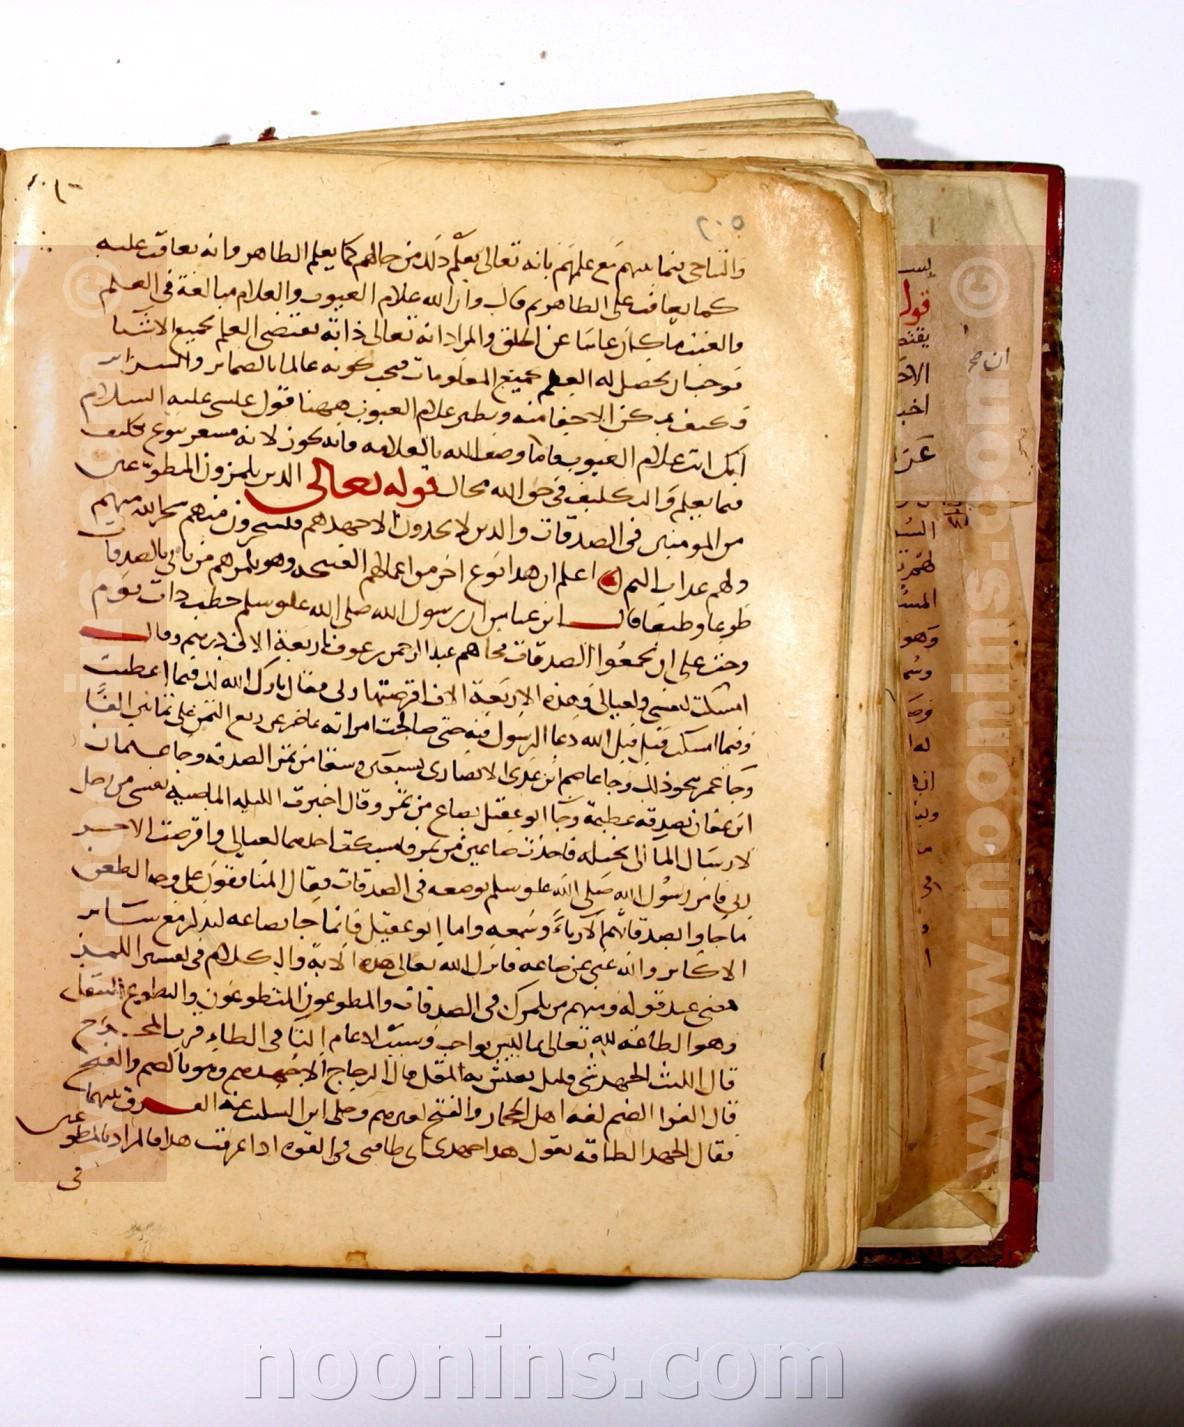 ٢٠٥
والتناجي فيما بينهم مع علمهم بانه تعالى يعلم ذلك من حالهم كما يعلم الظاهر وانه يعاقب عليه
كما يعاقب على الظاهر ثم قال وان الله علام الغيوب والعلام مبالغة في العلم
والغيب ما كان غائبا عن الخلق والمراد انه تعالى ذاته تقتضي العلم بجميع الاشيا
فوجب ان يحصل له العلم بجميع المعلومات فيجب كونه عالما بالضماير والسراير
وكيف يمكن الاخفا منه ونظير علام الغيوب ههنا قول عيسى عليه السلام
انك انت علام الغيوب فاما وصف الله بالعلامة فانه لا يجوز لانه مشعر بنوع تكلف
فيما يعلم والتكليف في حق الله محال قوله تعالى الذين يلمزون المطوعين
من المومنين في الصدقات والذين لا يجدون الا جهدهم فيسخرون منهم سخر الله منهم
ولهم عذاب اليم اعلم ان هذا نوع اخر من اعمالهم القبيحة وهو لمزهم من ياتي بالصدقات
طوعا وطبعا قال ابن عباس ان رسول الله صلى الله عليه وسلم خطب ذات يوم
وحث على ان يجمعوا الصدقات فجاهم عبد الرحمن بن عوف باربعة الاف درهم وقال
امسكت لنفسي ولعيالي وهذه الاربعة الاف اقرضتها ربي فقال بارك الله لك فيما اعطيت
وفيما امسكت قيل قبل الله دعا الرسول فيه حتى صالحت امراته تماضر عن ربع الثمن على ثمانين الفا
وجا عمر بنحو ذلك وجا عاصم ابن عدي الانصاري بسبعين وسقا من تمر الصدقة وجا عثمان
ابن عفان بصدقة عظيمة وجا ابو عقيل بصاع من تمر وقال اجرت الليلة الماضية نفسي من رجل
لارسال الما الى نخيله فاخذت صاعين من تمر فامسكت احدهما لعيالي واقرضت الاخر
ربي فامر رسول الله صلى الله عليه وسلم بوضعه في الصدقات فقال المنافقون على وجه الطعن
ما جاوا بصدقاتهم الا رياء وسمعة واما ابو عقيل فانما جا بصاعه ليذكر مع ساير
الاكابر والله غني عن صاعه فانزل الله تعالى هذه الاية والكلام في تفسير اللمز
مضى عند قوله ومنهم من يلمزك في الصدقات والمطوعون المتطوعون والتطوع التنفل
وهو الطاعة لله تعالى بما ليس بواجب وسبب الادغام التا في الطاء قرب المخرج
قال الليث الجهد شي قليل يعيش به المقل قال الزجاج الا جهدهم وهو بالضم والفتح
قال الفرا الضم لغة اهل الحجاز والفتح لغيرهم وحكى ابن السكيت عنه الفرق بينهما
فقال الجهد الطاقة تقول هذا جهدي اي طاقتي في القوة اذا عرفت هذا فالمراد بالمطوعين
في
قول
الا
اخبر
ان صح
المسا
وهو
www.noonins.com ©
www.noonins.com ©
noonins.com